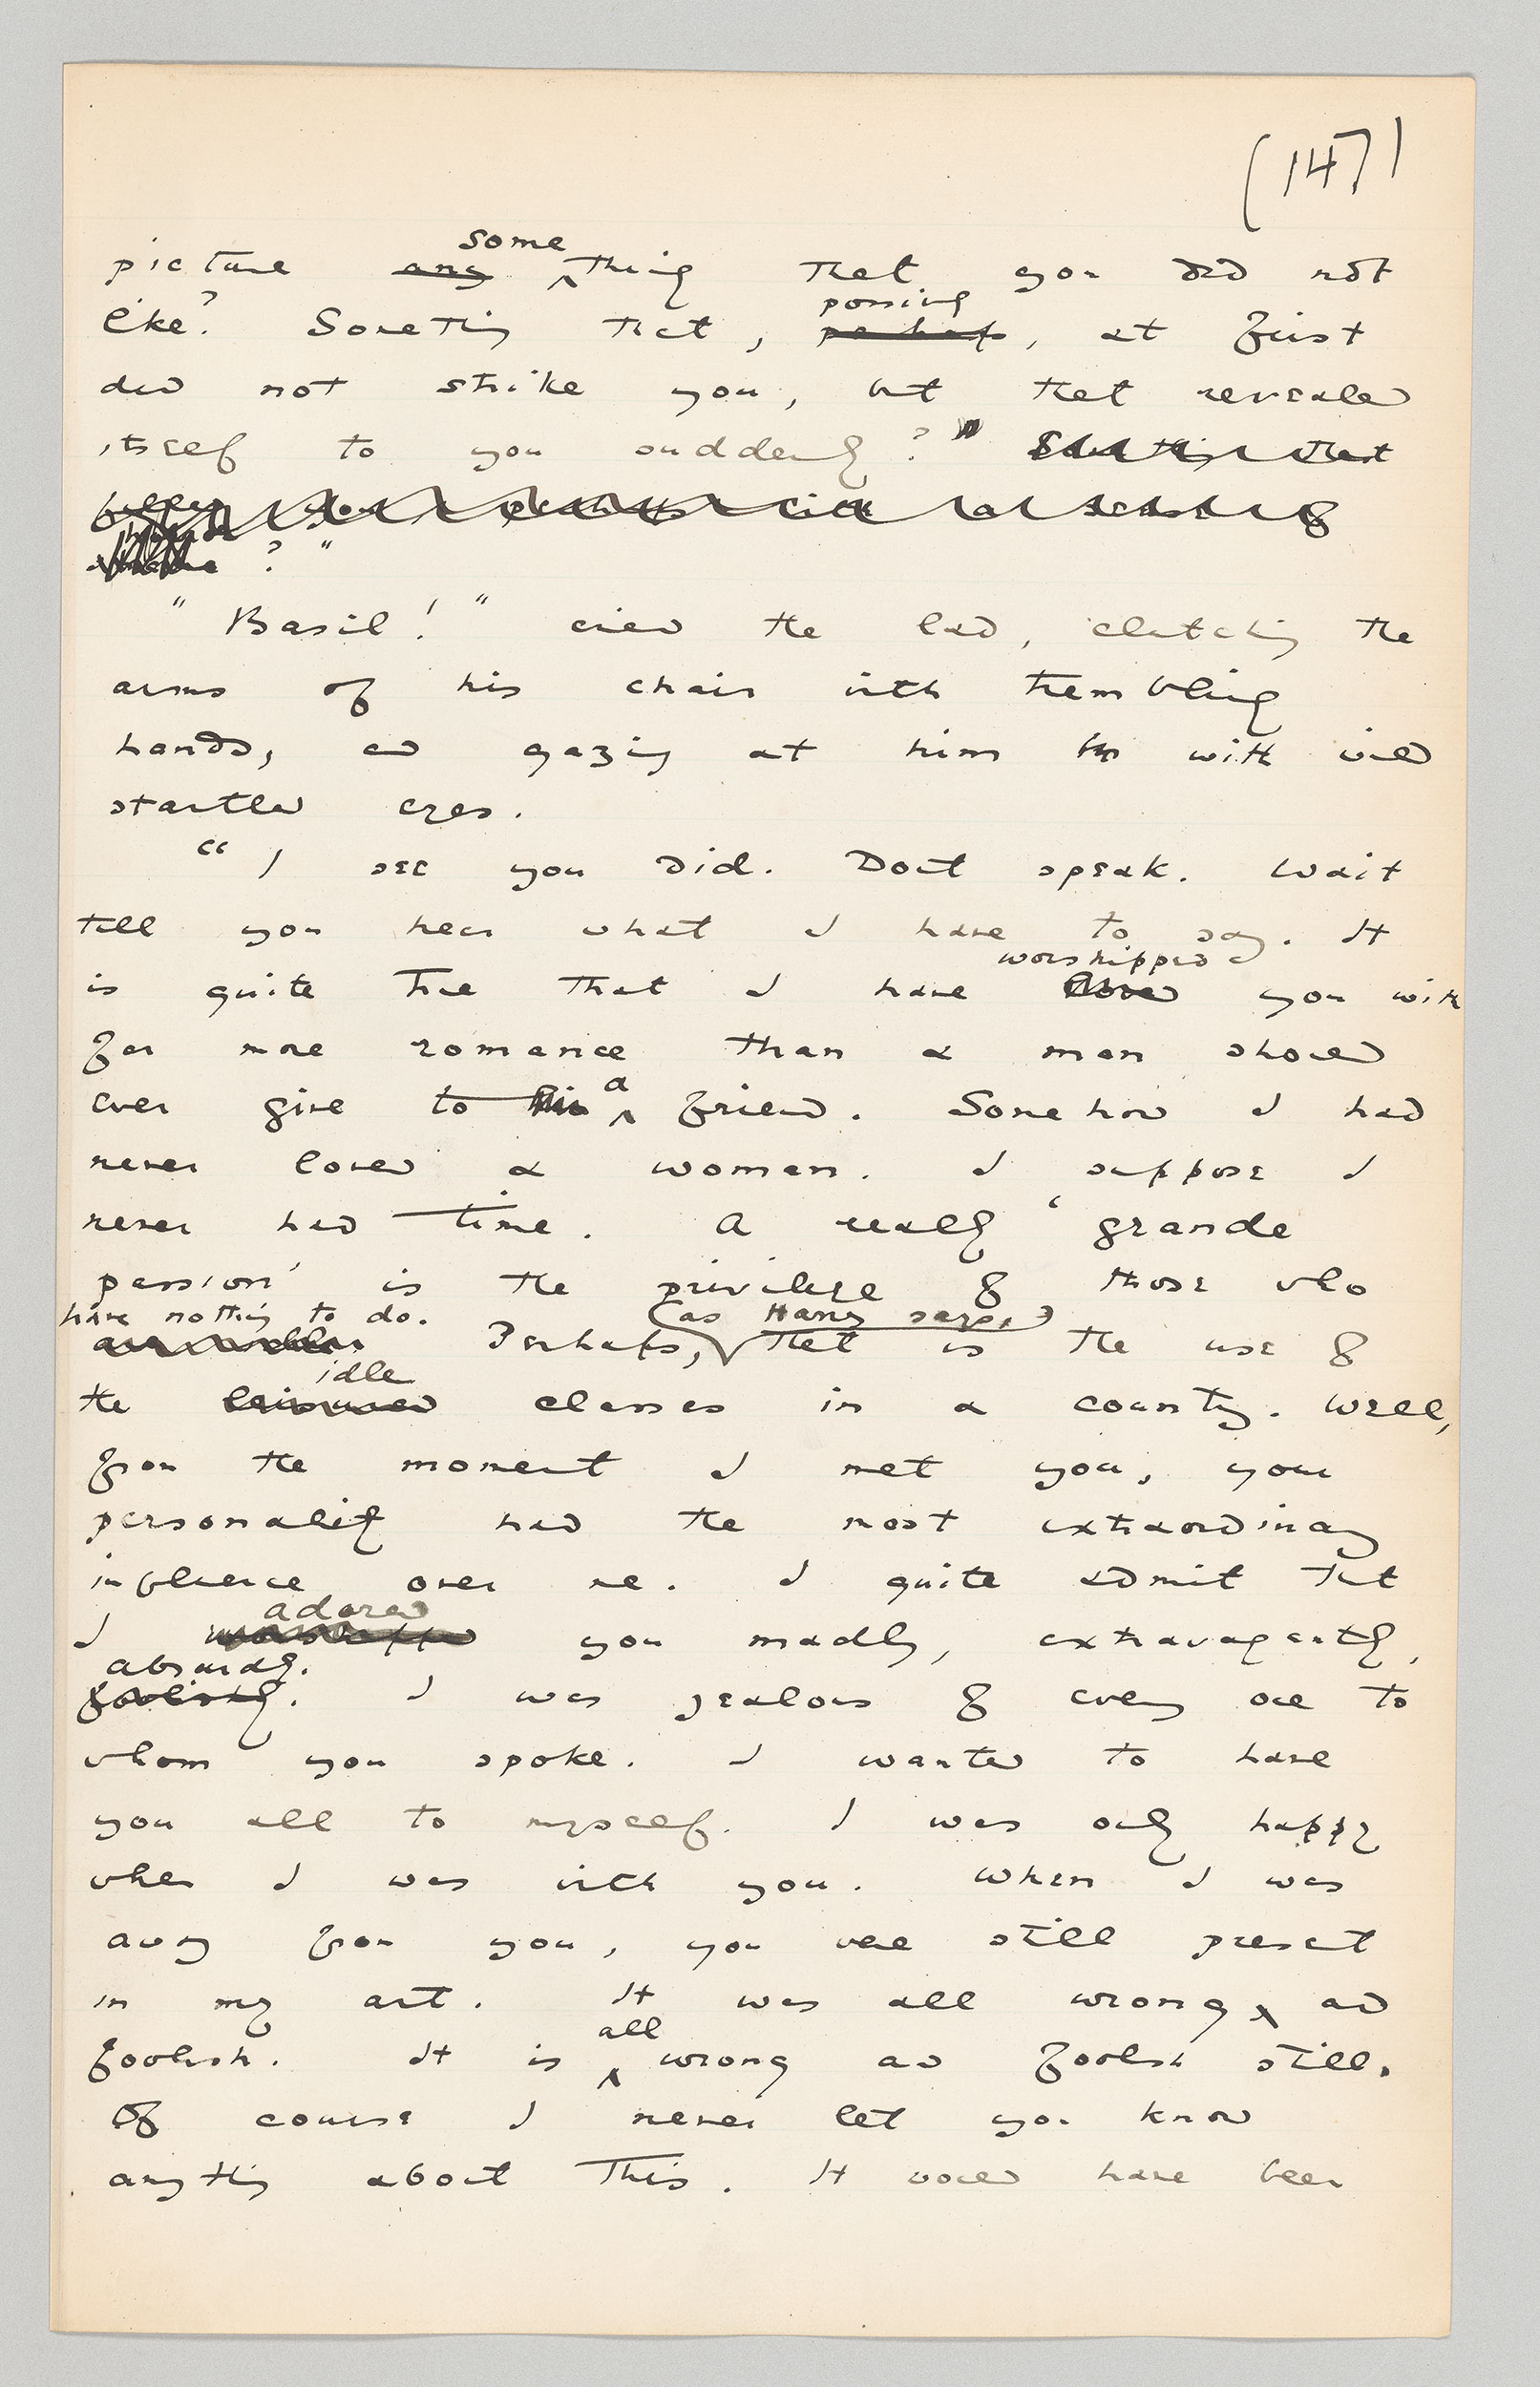 (147)
some
picture any thing that you did not
possibly
like? Something that, perhaps, at first
did not strike you, but that revealed
itself to you suddenly?" Something that
filled you
? "
"Basil!" cried the lad, clutching the
arms of his chair with trembling
hands, and gazing at him with wild
startled eyes.
"I see you did. Don't speak. Wait
till you hear what I have to say. It
worshipped
is quite true that I have loved you with
far more romance than a man should
a
ever give to his friend. Somehow I had
never loved a woman. I suppose I
never had time. A really 'grande
passion' is the privilege of those who
have nothing to do. (as Harry says,)
are idle. Perhaps, that is the use of
idle
the leisured classes in a country. Well,
from the moment I met you, your
personality had the most extraordinary
influence over me. I quite admit that
adored
I worshipped you madly, extravagantly,
absurdly.
foolishly. I was jealous of every one to
whom you spoke. I wanted to have
you all to myself. I was only happy
when I was with you. When I was
away from you, you were still present
in my art. It was all wrong and
all
foolish. It is wrong and foolish still.
Of course I never let you know
anything about this. It would have been